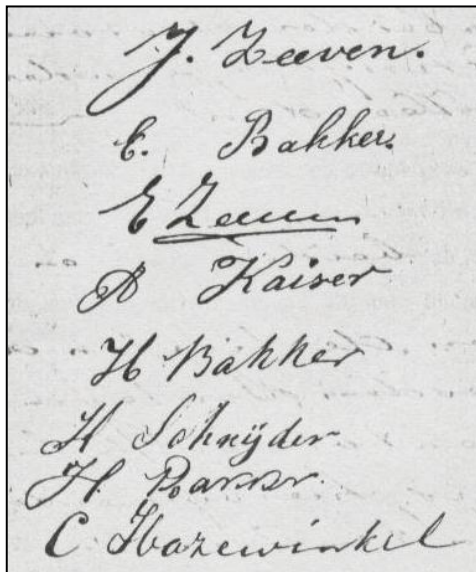 J. Zeeven.
E. Bakker.
E Zeeuw
A Kaiser
H Bakker
H Schnijder
H.
C Hazewinkel